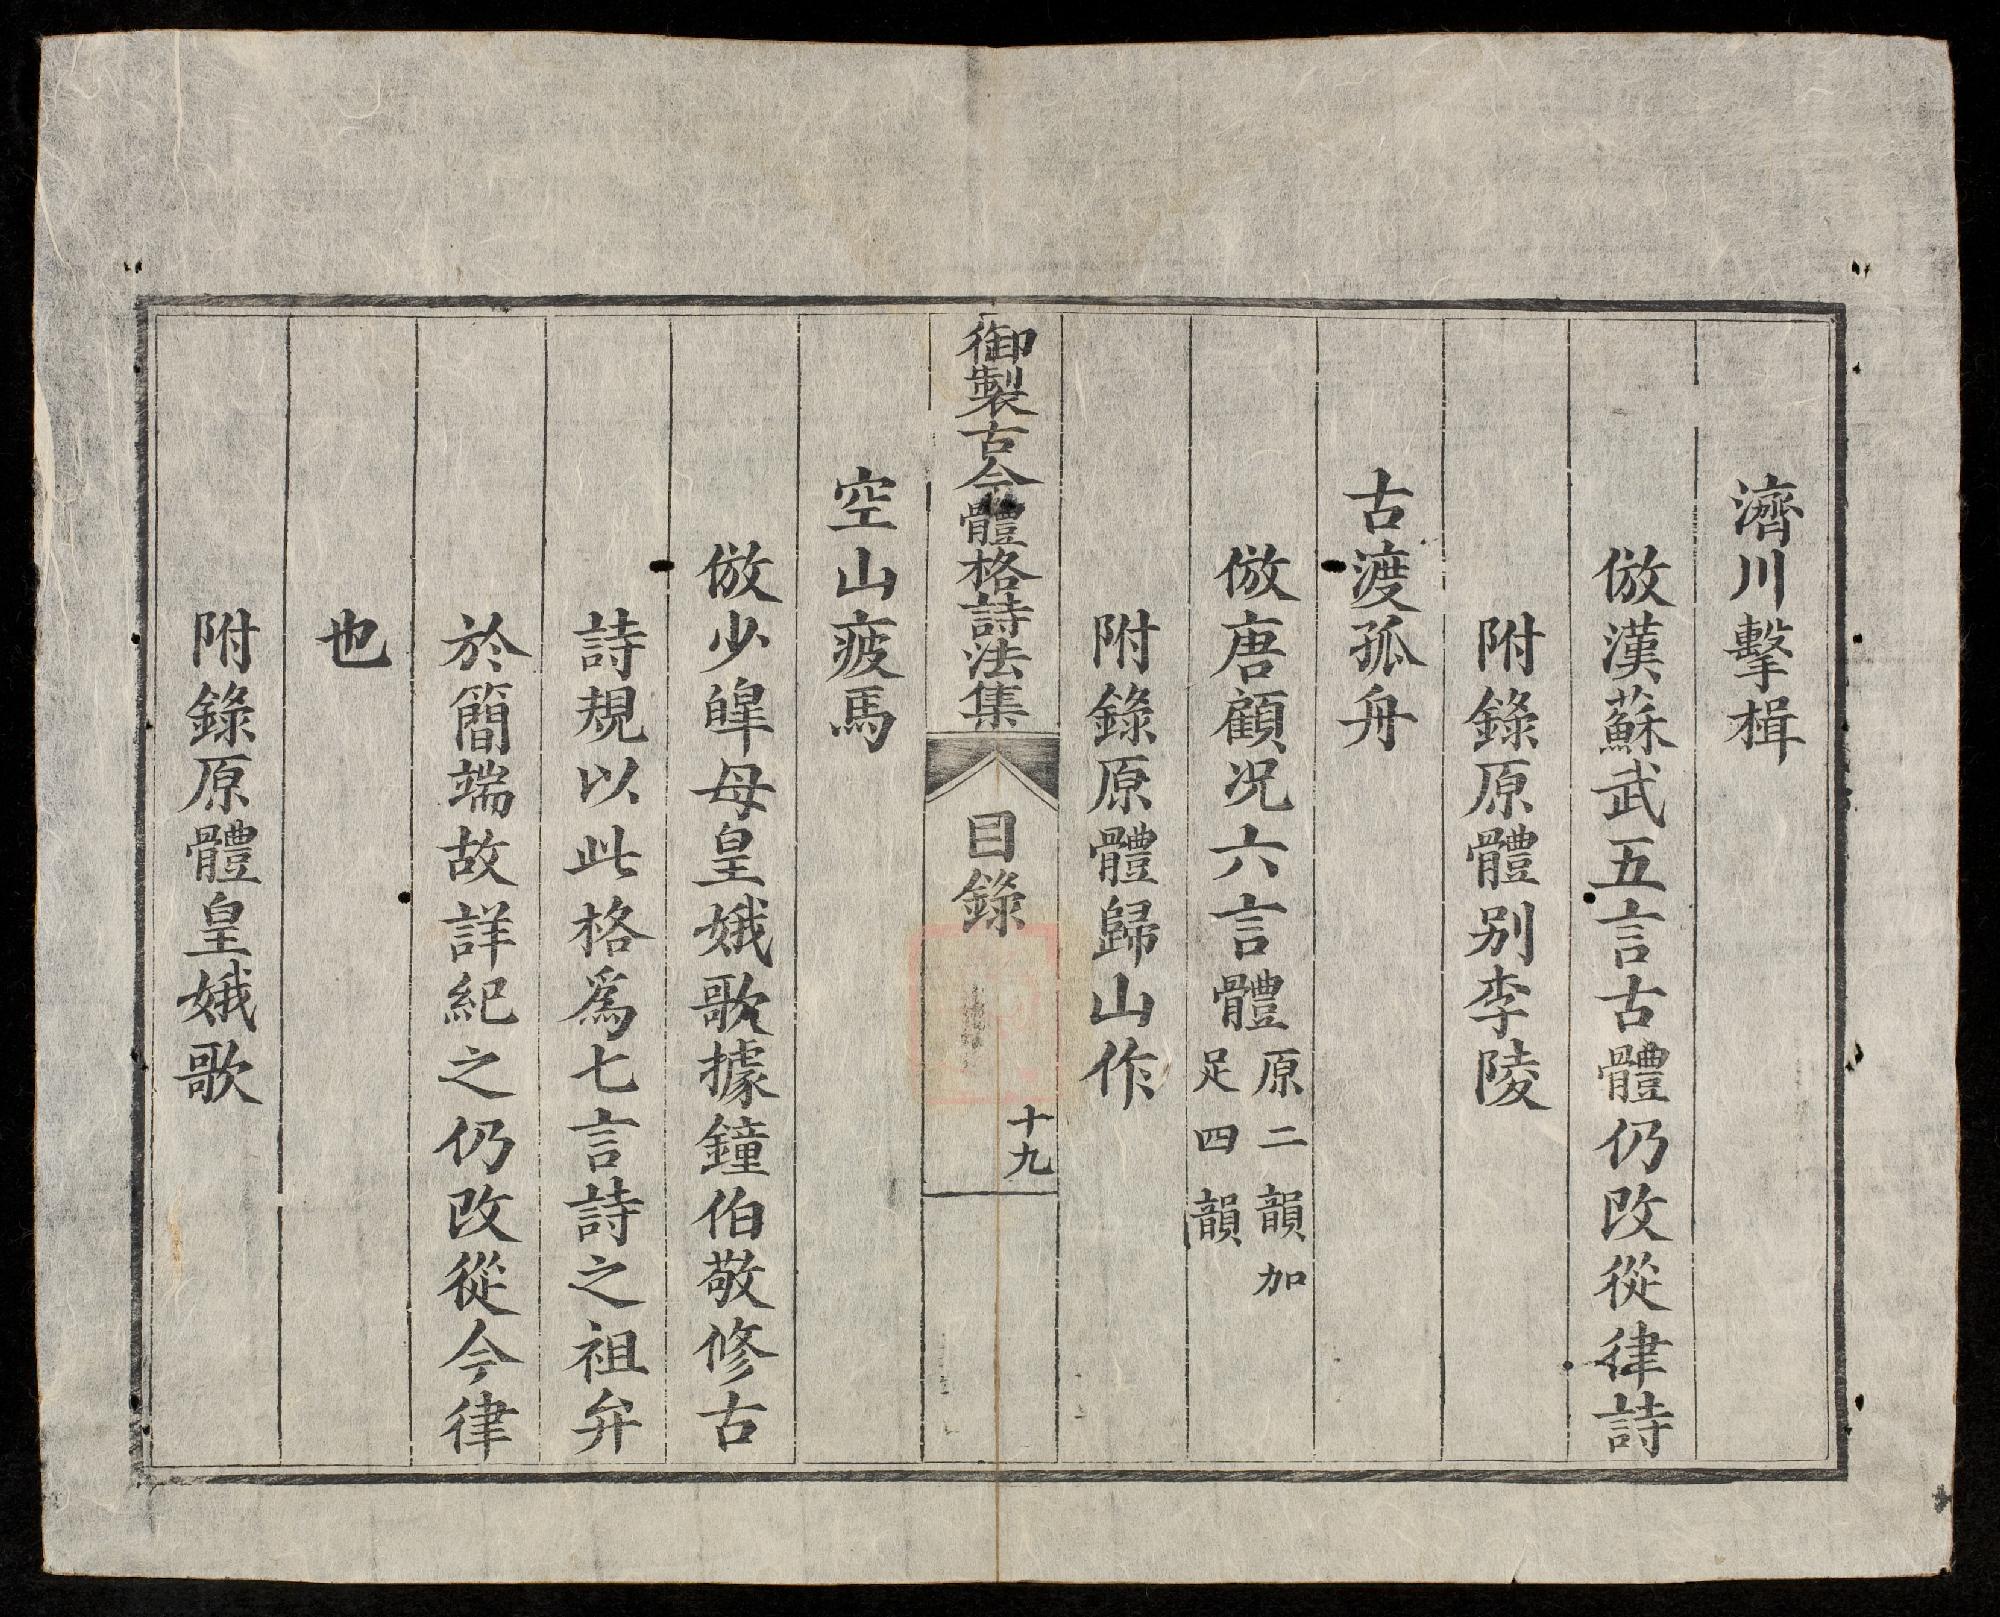 濟川擊楫
倣漢蘇武五言古體仍改從律詩
附錄原體别李陵
古渡孤舟
倣唐顧况六言體原二韻加
足四韻
附錄原體歸山作
御製古今體格詩法集
目錄
十九
空山疲馬
倣少皞母皇娥歌據鐘伯敬修古
詩規以此格爲七言詩之祖弁
於簡端故詳紀之仍改從今律
也
附錄原體皇娥歌